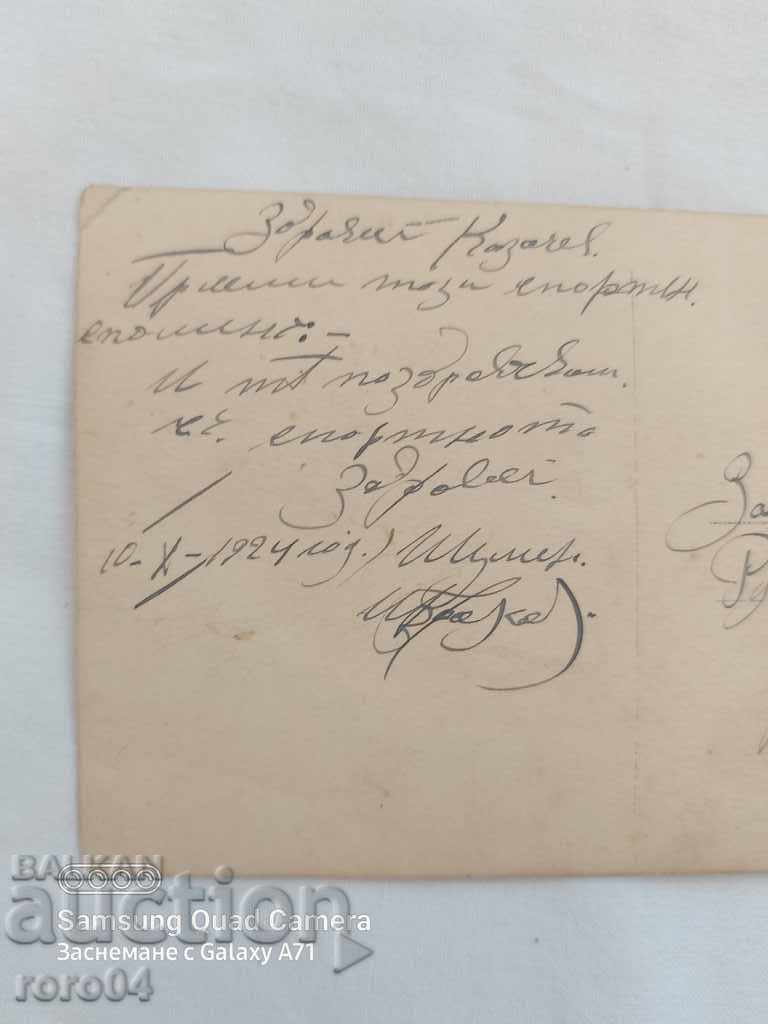 Здравей Казачев.
Приеми този спортен
спомен:-
И те поздравявам
спортното
Здравей
10-X-1924 год.) Шумен.
За
BALKAN
auction
Samsung Quad Camera
Заснемане с Galaxy A71
roro04